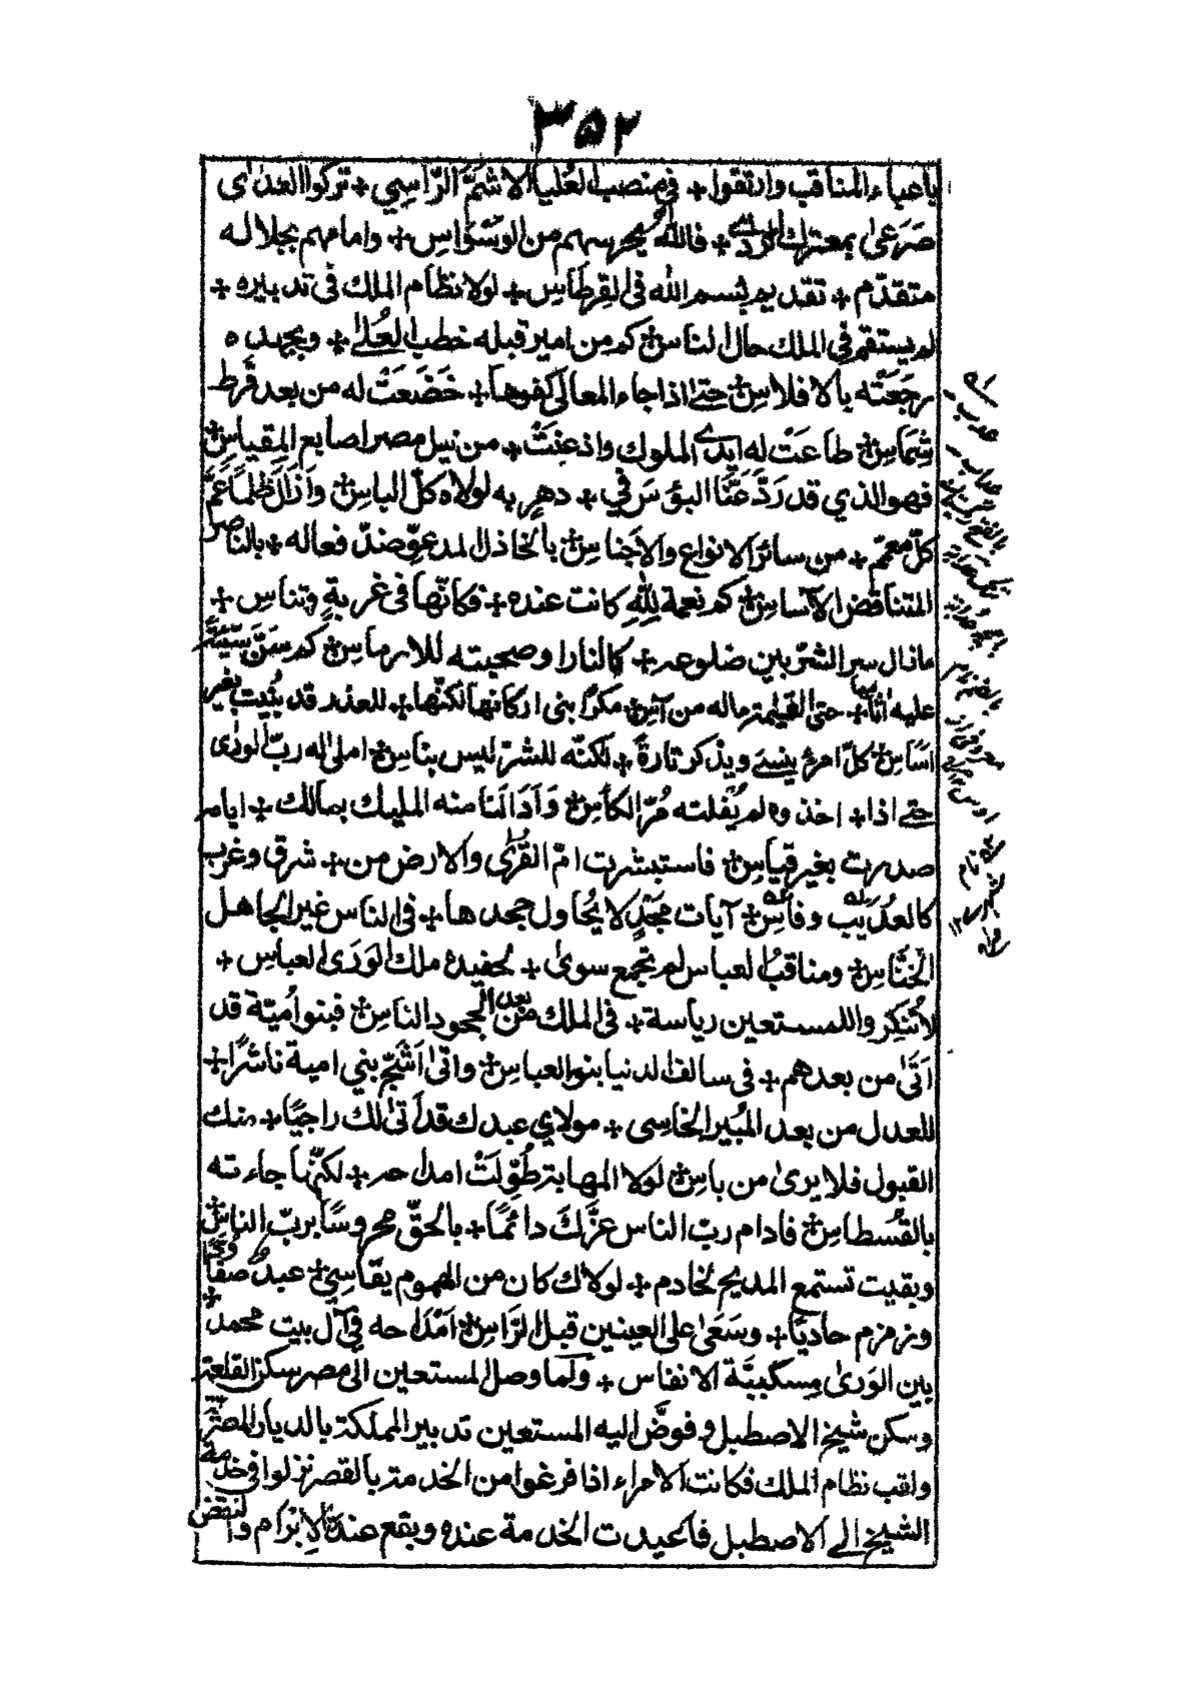 ٣٥٢
باعباء المناقب وارتقوا + في منصب العُليا الاشمّ الرّاسي + تركوا العِدٰى
صَرَعىٰ بمعترك الردى + فالله يحرسهم من الوَسْوَاس + وامامهم بجلاله
متقدّم + تقديم بسم الله في القِرطاس + لولا نظام الملك في تدبيره +
لم يستقم في الملك حال الناس + كم من امير قبله خطب العُلىٰ + وبجهده
رجَعَتْه بالافلاس + حتى اذا جاء المعالي كفوها + خَضَعَتْ له من بعد فَرط
شِمَاس + طاعَتْ له ايدي الملوك واذعنَتْ + من نيل مصر اصابع المقياس +
فهو الذي قد رَدَّ عَنَّا البؤس في + دهرٍ به لولاه كلّ الباس + وازال ظلمًا عَمَّ
كلّ معمّم + من سائر الانواع والاجناس + بالخاذل المدعوّ ضدّ فعاله + بالناصر
المتناقض الآساس + كم نعمة للّٰهِ كانت عنده + فكانّها في غربةٍ وتناس +
مازال سر الشرّ بين ضلوعه + كالنار او صحبته للارماس + كم سَنّ سيّئةً
عليه اثامها + حتى القيٰمة ماله من آس + مكرًا بنى اركانها لكنّها + للغدر قد بُنيت بغير
اساس + كلّ امرئ ينسى ويذكر تارةً + لكنّه للشرّ ليس بناس + املىٰ له ربّ الورٰى
حتى اذا + اخذوه لم يُفلته مُرّ الكأس + وَاَدَالَنا منه المليك بمالك + ايامه
صدرت بغير قياس + فاستبشرت امّ القُرٰى والارض من + شرق وغرب
كالعُذيب وفاس + آيات مجدٍ لا يُحاول جحدها + في الناس غير الجاهل
الخنّاس + ومناقب العباس لم تجمع سوىٰ + لحفيده ملك الوَرَى العباس +
لا تنكروا للمستعين رياسة + في الملك من بعد الجحود الناس + فبنو اُميّة قد
اَتَىٰ من بعدهم + في سالف الدنيا بنو العباس + واتىٰ اَشَجّ بني امية ناشرًا +
للعدل من بعد المُبير الخاسى + مولاي عبدك قد اَتىٰ لك راجيًا + منك
القبول فلا يرىٰ من باس + لولا المهابة طُوّلَتْ امداحه + لكنّها جاءته
بالقُسطاس + فادام ربّ الناس عزَّكَ دائمًا + بالحقّ محروسًا بربّ الناس +
وبقيت تستمع المديح لخادم + لولاك كان من الهموم يقاسي + عبدٌ صفا وُدًّا
وزمزم حاديًا + وسَعَىٰ على العينين قبل الرَّاس + اَمْدَاحه في آل بيت محمد +
بين الوَرىٰ مِسكيّة الانفاس + ولما وصل المستعين الى مصر سكن القلعة
وسكن شيخ الاصطبل وفوّض اليه المستعين تدبير المملكة بالديار المصريّة
ولقب نظام الملك فكانت الامراء اذا فرغوا من الخدمة بالقصر نزلوا في خدمة
الشيخ الى الاصطبل فاعيدت الخدمة عنده ويقع عنده الاِبْرام والنقض